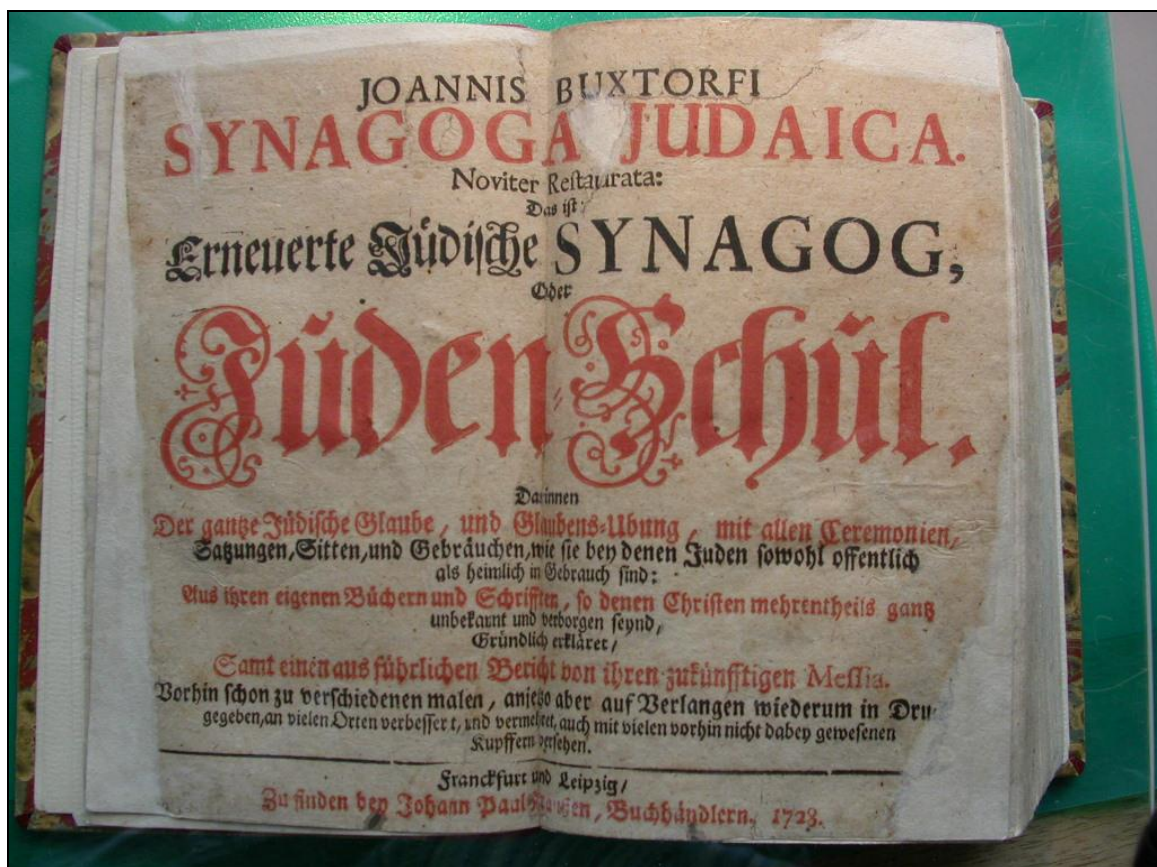 JOANNIS BUXTORFI
SYNAGOGA JUDAICA.
Noviter Restaurata:
Das ist:
Erneuerte Jüdische SYNAGOG,
Oder
Jüden-Schül.
Darinnen
Der gantze Jüdische Glaube, und Glaubens-Ubung, mit allen Ceremonien,
Satzungen, Sitten, und Gebräuchen, wie sie bey denen Juden sowohl offentlich
als heimlich in Gebrauch sind:
Aus ihren eigenen Büchern und Schrifften, so denen Christen mehrentheils gantz
unbekannt und verborgen seynd,
Gründlich erkläret,
Samt einen ausführlichen Bericht von ihren zukünfftigen Messia.
Vorhin schon zu verschiedenen malen, anjetzo aber auf Verlangen wiederum in
gegeben, an vielen Orten verbessert, und vermehret, auch mit vielen vorhin nicht dabey gewesenen
Kupffern versehen.
Franckfurt und Leipzig,
Zu finden bey Johann Paul, Buchhändlern. 1728.